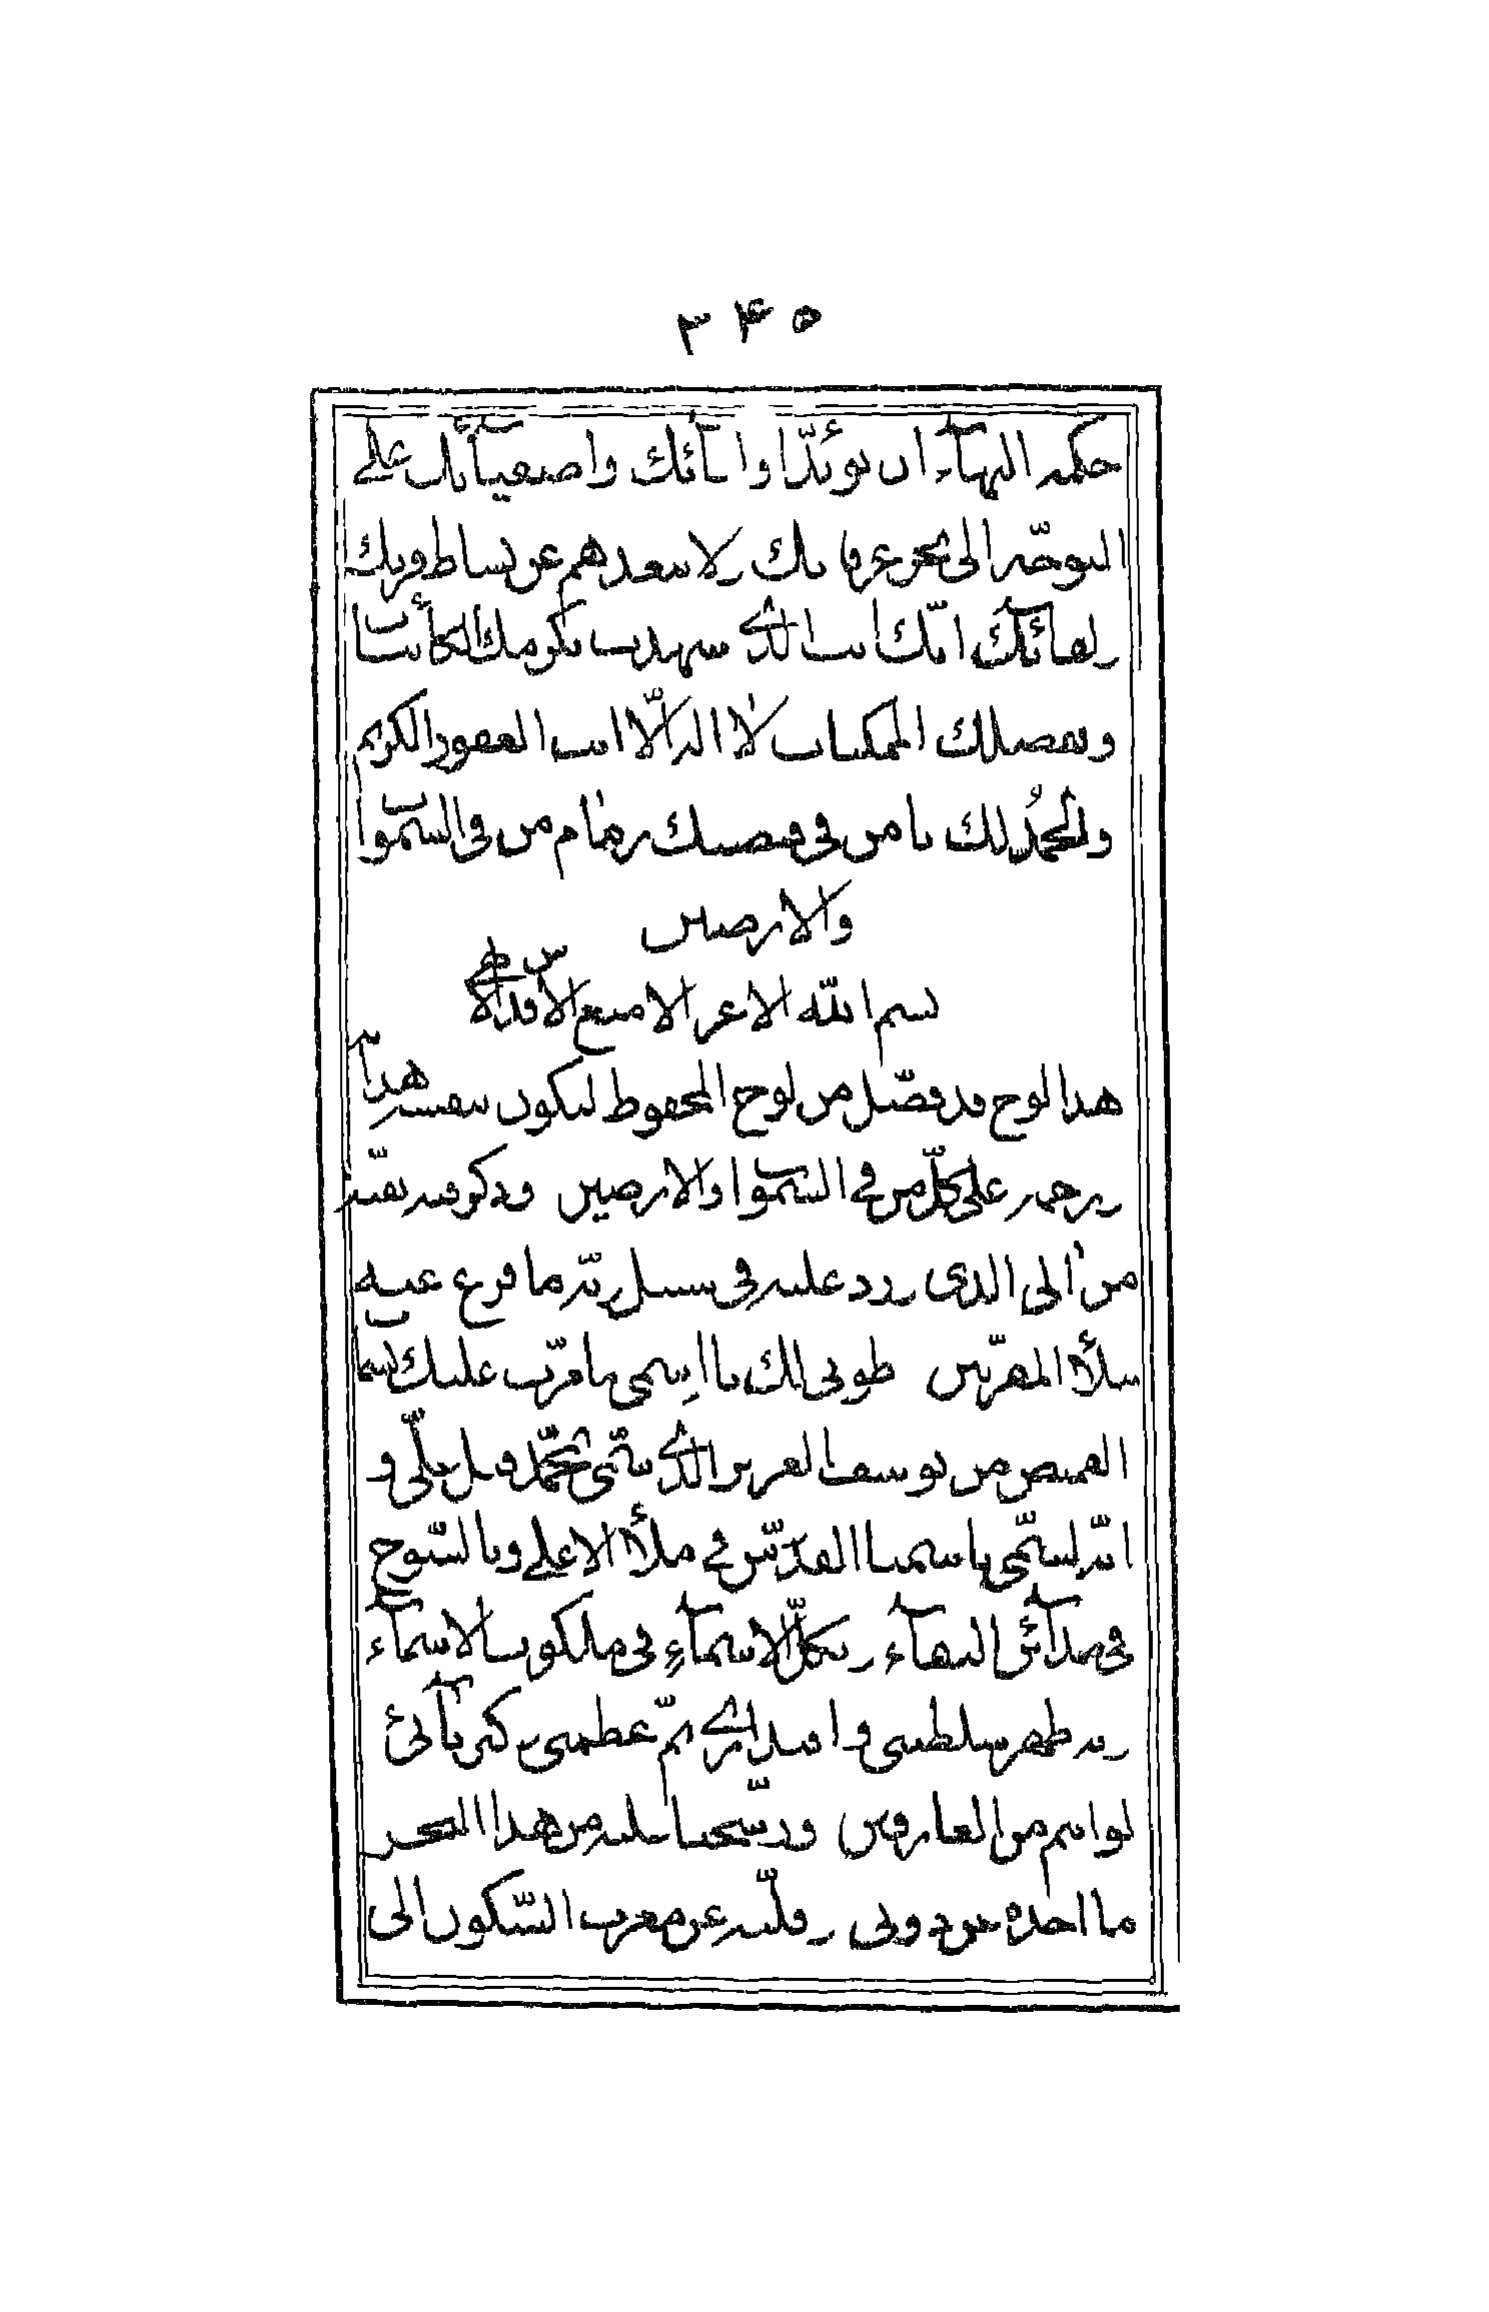 ۳۴۵
حكمه البهآء ان تؤيّد اوليآئك واصفيآئك على
التوجّه الى بحر عرفانك ولا تبعدهم عن بساط قربك
ولقائك انّك انت الّذى شهدت بكرمك الكائنات
وبفضلك الممكنات لا اله الّا انت الغفور الكريم
والحمدُ لك يا من فى قبضتك زمام من فى السّموات
والارضين
بسم اللّه الاعز الامنع الاقدس الابهى
هذا لوح قد فصّل من لوح المحفوظ ليكون بنفسه هدًا
ورحمه على كلّ من فى السّموات والارضين وذكر فيه نفسه
من الى الذى ورد عليه فى سبيل ربّه ما فزع عنه
ملأ المقرّبين طوبى لك يا اسمى بما مرّت عليك نسمات
القميص من يوسف العزيز الّذى سمّى بمحمّد قبل على و
انّه لسمّى باسمنا القدّس فى ملأ الاعلى وبالسّبوح
فى مدآئن البهآء وبكلّ الاسمآءِ فى ملكوت الاسمآء
وبه ظهر سلطنتى واقتدارى ثمّ عظمتى وكبريآئى
لو انتم من العارفين قد سمعنا منه من هذا الفجر
ما اخذه عن دونى وقلّبه عن مغرب السّكون الى